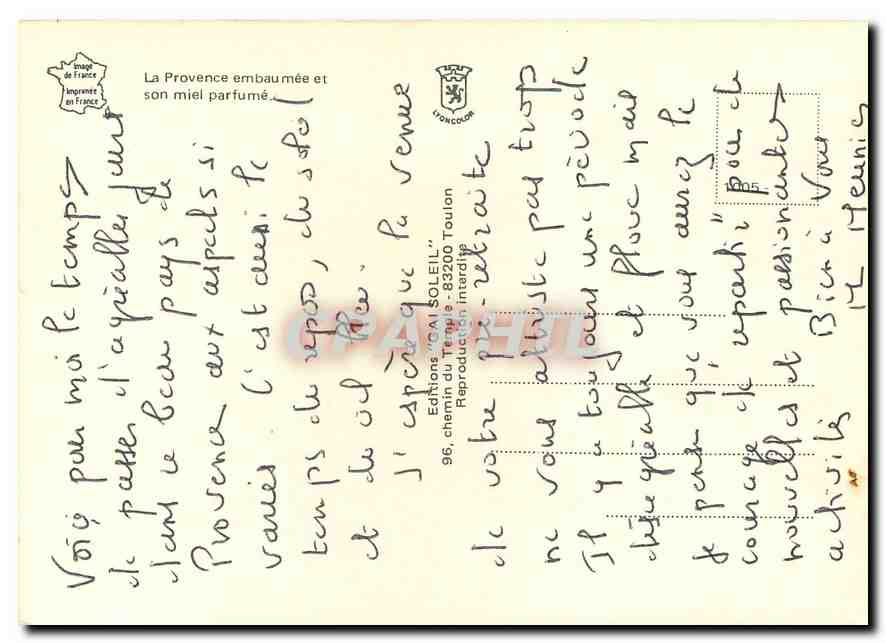 Image
de France
Imprimée
en France
La Provence embaumée et
son miel parfumé.
LYONCOLOR
Editions "GAI SOLEIL"
96, chemin du Temple - 83200 Toulon
Reproduction interdite
CPARHTL
Voici pour moi le temps
de passer d'agréables jours
dans ce beau pays de
Provence aux aspects si
variés. C'est aussi le
temps du repos, du soleil
et du ciel bleu.
J'espère que la venue
de votre pré-retraite
ne vous attriste pas trop
Il y a toujours une période
désagréable et floue mais
je pense que vous aurez le
courage de "repartir" pour de
nouvelles et passionantes
activités
Bien à Vous
M Meunier